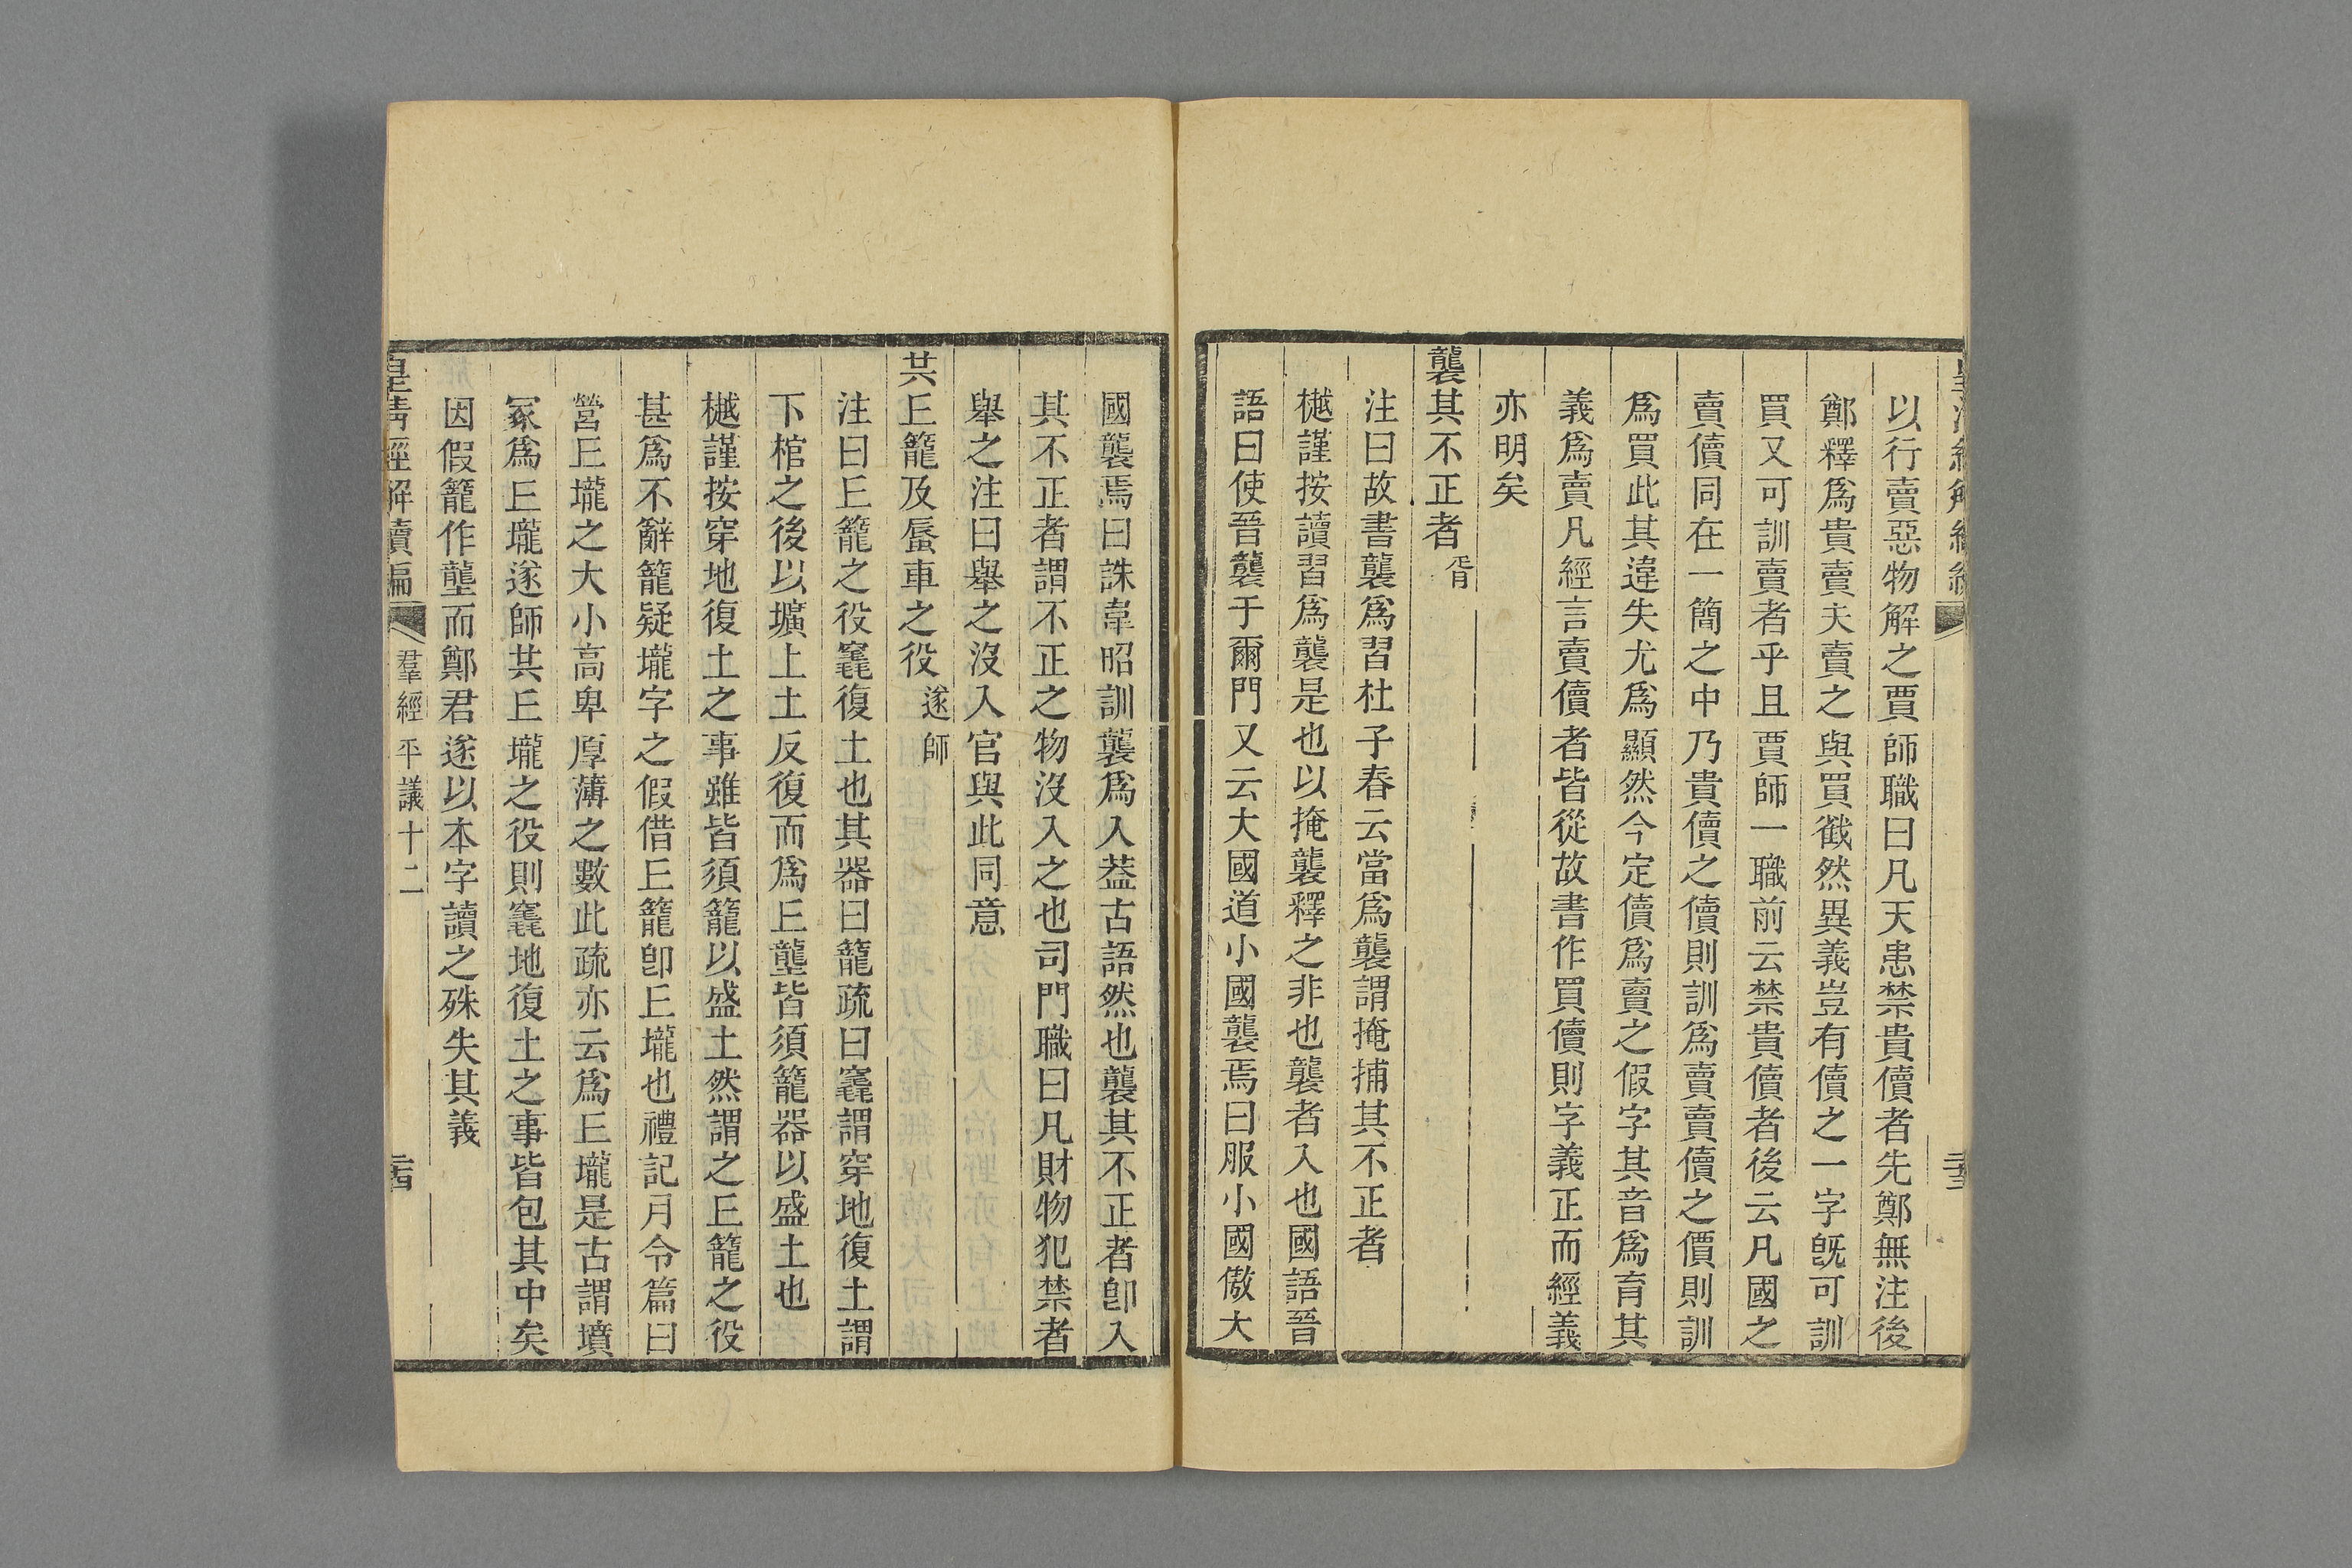 以行賣惡物解之賈師職曰凡天患禁貴儥者先鄭無注後
鄭釋爲貴賣夫賣之與買截然異義豈有儥之一字旣可訓
買又可訓賣者乎且賈師一職前云禁貴儥者後云凡國之
賣儥同在一簡之中乃貴儥之儥則訓爲賣賣儥之價則訓
爲買此其違失尤爲顯然今定儥爲賣之假字其音爲育其
義爲賣凡經言賣儥者皆從故書作買儥則字義正而經義
亦明矣
襲其不正者 胥
注曰故書襲爲習杜子春云當爲襲謂掩捕其不正者
樾謹按讀習爲襲是也以掩襲釋之非也襲者入也國語晉
語曰使晉襲于爾門又云大國道小國襲焉曰服小國傲大
國襲焉曰誅韋昭訓襲爲入葢古語然也襲其不正者卽入
其不正者謂不正之物沒入之也司門職曰凡財物犯禁者
舉之注曰舉之沒入官與此同意
共丘籠及蜃車之役 遂師
注曰丘籠之役竁復土也其器曰籠疏曰竁謂穿地復土謂
下棺之後以壙上土反復而爲丘壟皆須籠器以盛土也
樾謹按穿地復土之事雖皆須籠以盛土然謂之丘籠之役
甚爲不辭籠疑壠字之假借丘籠卽丘壠也禮記月令篇曰
營丘壠之大小高卑厚薄之數此疏亦云爲丘壠是古謂墳
冢爲丘壠遂師共丘壠之役則竁地復土之事皆包其中矣
因假籠作壟而鄭君遂以本字讀之殊失其義
皇淸經解續編 羣經平議十二